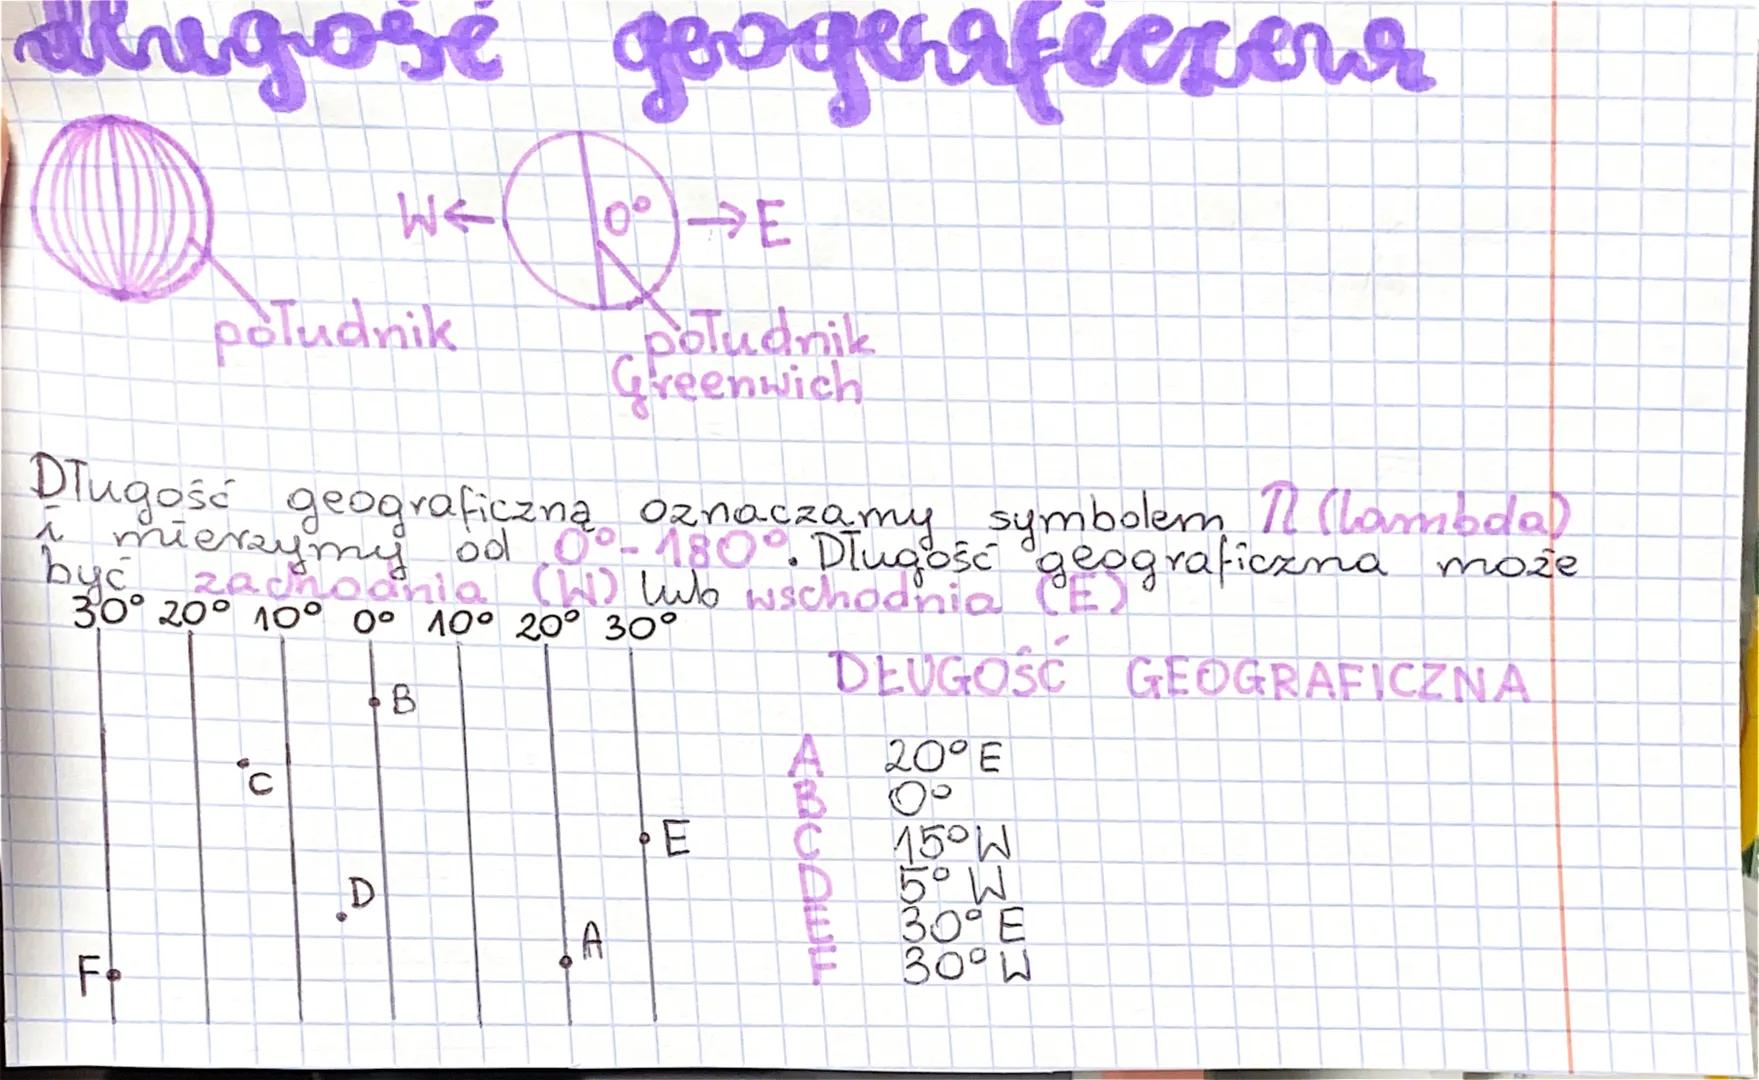 długość geograficzna
W ← 0° → E
południk
południk
Greenwich
Długość geograficzną oznaczamy symbolem λ (lambda)
i mierzymy od 0°-180°. Długość geograficzna może
być zachodnia (W) lub wschodnia (E)
30° 20° 10° 0° 10° 20° 30°
B
C
E
D
A
F
DŁUGOŚĆ GEOGRAFICZNA
A 20°E
B 0°
C 15°W
D 5°W
E 30°E
F 30°W